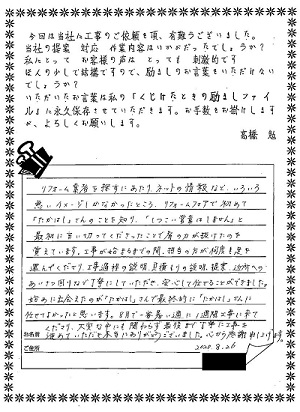 今回は当社に工事のご依頼を頂、有難うございました。
当社の提案 対応 作業内容はいかがだったでしょうか?
私にとって お客様の声は とっても 刺激的です
ほんの少しで結構ですので、励ましのお言葉をいただけない
でしょうか?
いただいたお言葉は私の「くじけたときの励しファイ
ル」に永久保存させていただきます。お手数をお掛けします
が、よろしくお願いします。
高橋 勉
リフォーム業者を探すにあたり、ネットの情報など、いろいろ
悪いイメージしかなかったところ、リフォームフェアで初めて
「たかはし」さんのことを知り、「しつこい営業はしません」と
最初に言い切ってくださったことで肩の力が抜けたのを
覚えています。工事が始まるまでの間、担当の方が何度も足を
運んでくださり、工事過程の説明、見積りの説明、提案、近所への
あいさつ回りなど丁寧にしていただき、安心して任せることができました。
始めに出会えたのが「たかはし」さんで最終的に「たかはし」さんに
任せてよかったと思います。8月で一番暑い週に1週間工事に来て
くださり、大変な中にも関わらず最後まで丁寧に工事を
お名前 進めていただき本当にありがとうございました。心から感謝申し上げます。
ご住所 2020.8.26